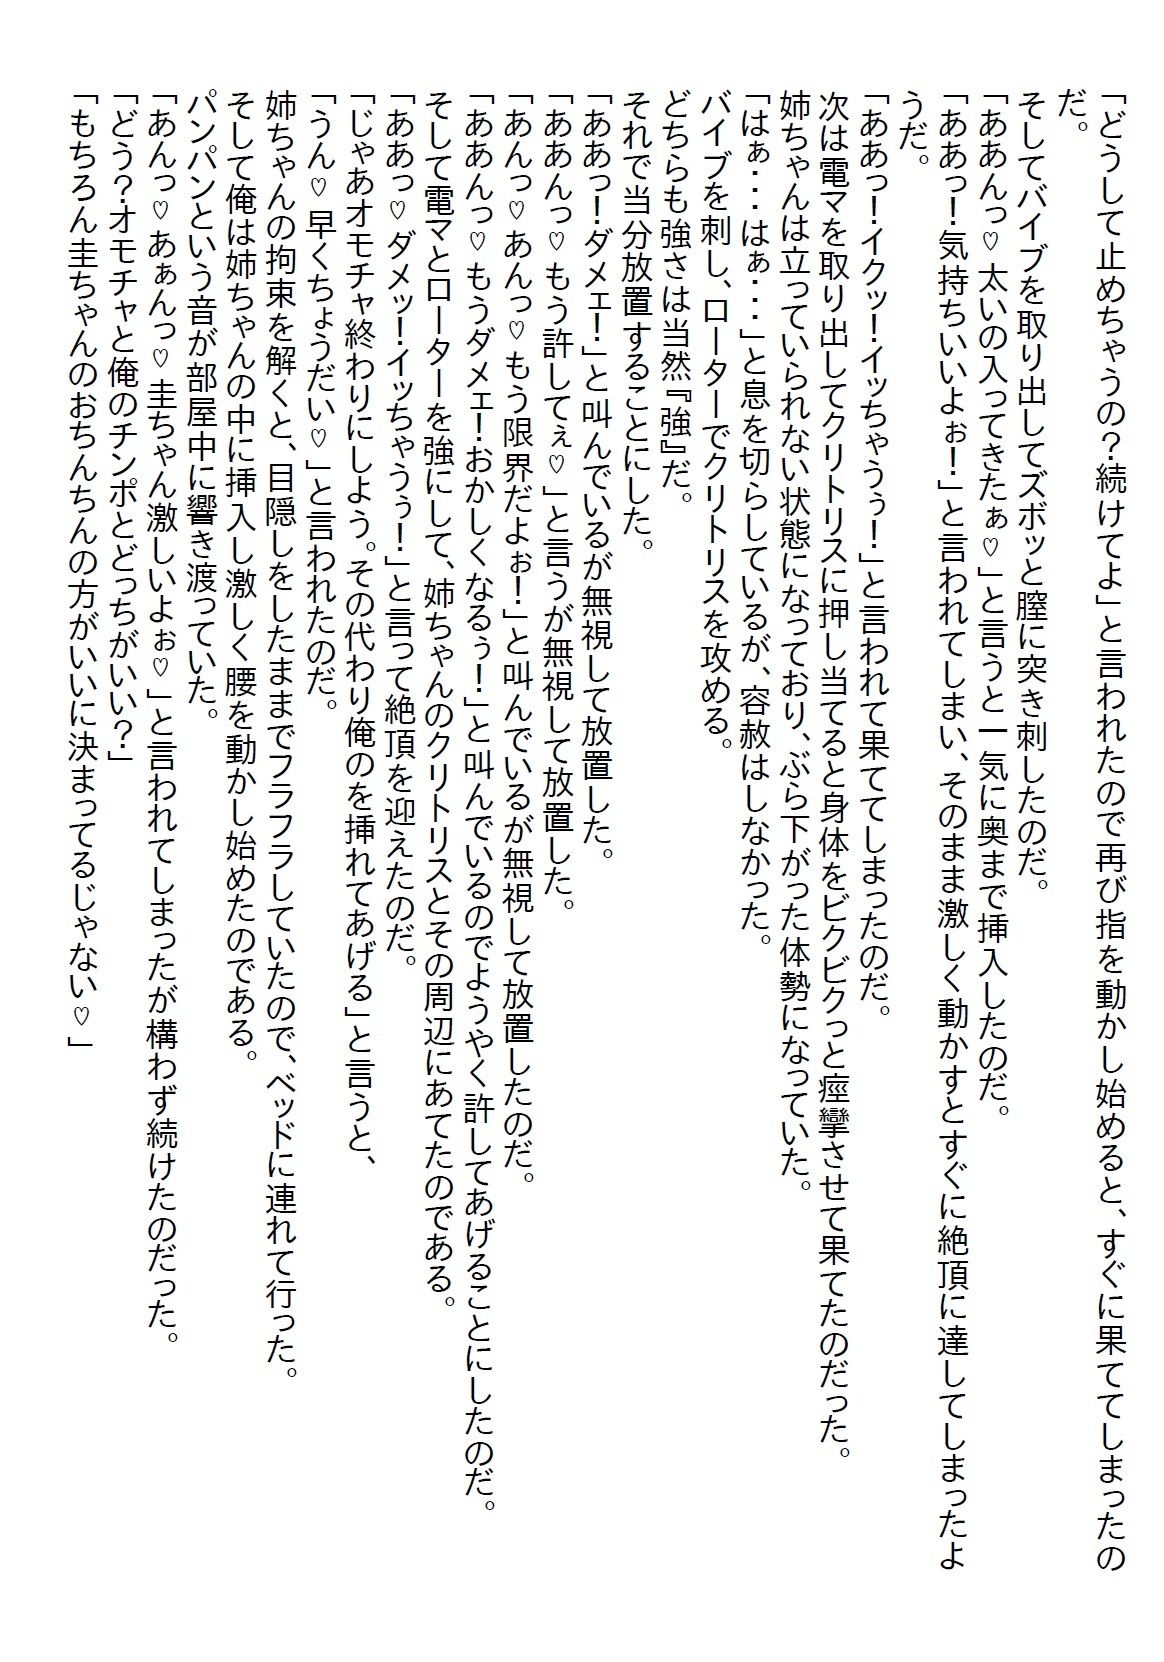 「どうして止めちゃうの？続けてよ」と言われたので再び指を動かし始めると、すぐに果ててしまったの
だ。
そしてバイブを取り出してズボッと膣に突き刺したのだ。
「ああんっ♡太いの入ってきたぁ♡」と言うと一気に奥まで挿入したのだ。
「ああっ！気持ちいいよぉ！」と言われてしまい、そのまま激しく動かすとすぐに絶頂に達してしまったよ
うだ。
「ああっ！イクッ！イッちゃうぅ！」と言われて果ててしまったのだ。
次は電マを取り出してクリトリスに押し当てると身体をビクビクっと痙攣させて果てたのだった。
姉ちゃんは立っていられない状態になっており、ぶら下がった体勢になっていた。
「はぁ・・・はぁ・・・」と息を切らしているが、容赦はしなかった。
バイブを刺し、ローターでクリトリスを攻める。
どちらも強さは当然『強』だ。
それで当分放置することにした。
「ああっ！ダメェ！」と叫んでいるが無視して放置した。
「ああんっ♡もう許してぇ♡」と言うが無視して放置した。
「あんっ♡あんっ♡もう限界だよぉ！」と叫んでいるが無視して放置したのだ。
「ああんっ♡もうダメェ！おかしくなるぅ！」と叫んでいるのでようやく許してあげることにしたのだ。
そして電マとローターを強にして、姉ちゃんのクリトリスとその周辺にあてたのである。
「ああっ♡ダメッ！イッちゃうぅ！」と言って絶頂を迎えたのだ。
「じゃあオモチャ終わりにしよう。その代わり俺のを挿れてあげる」と言うと、
「うん♡早くちょうだい♡」と言われたのだ。
姉ちゃんの拘束を解くと、目隠しをしたままでフラフラしていたので、ベッドに連れて行った。
そして俺は姉ちゃんの中に挿入し激しく腰を動かし始めたのである。
パンパンという音が部屋中に響き渡っていた。
「あんっ♡あぁんっ♡圭ちゃん激しいよぉ♡」と言われてしまったが構わず続けたのだった。
「どう？オモチャと俺のチンポとどっちがいい？」
「もちろん圭ちゃんのおちんちんの方がいいに決まってるじゃない♡」